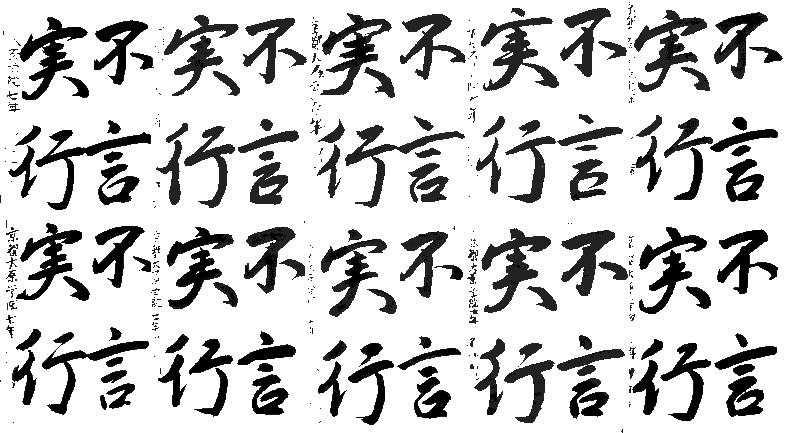 不言
実行
不言
実行
不言
実行
不言
実行
不言
実行
不言
実行
京都大原学院 七年
不言
実行
不言
実行
不言
実行
不言
実行